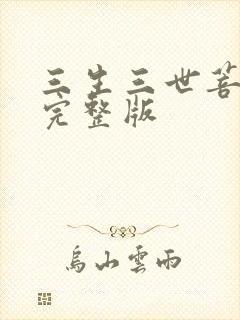 三生三世菩
完整版
烏山雲雨